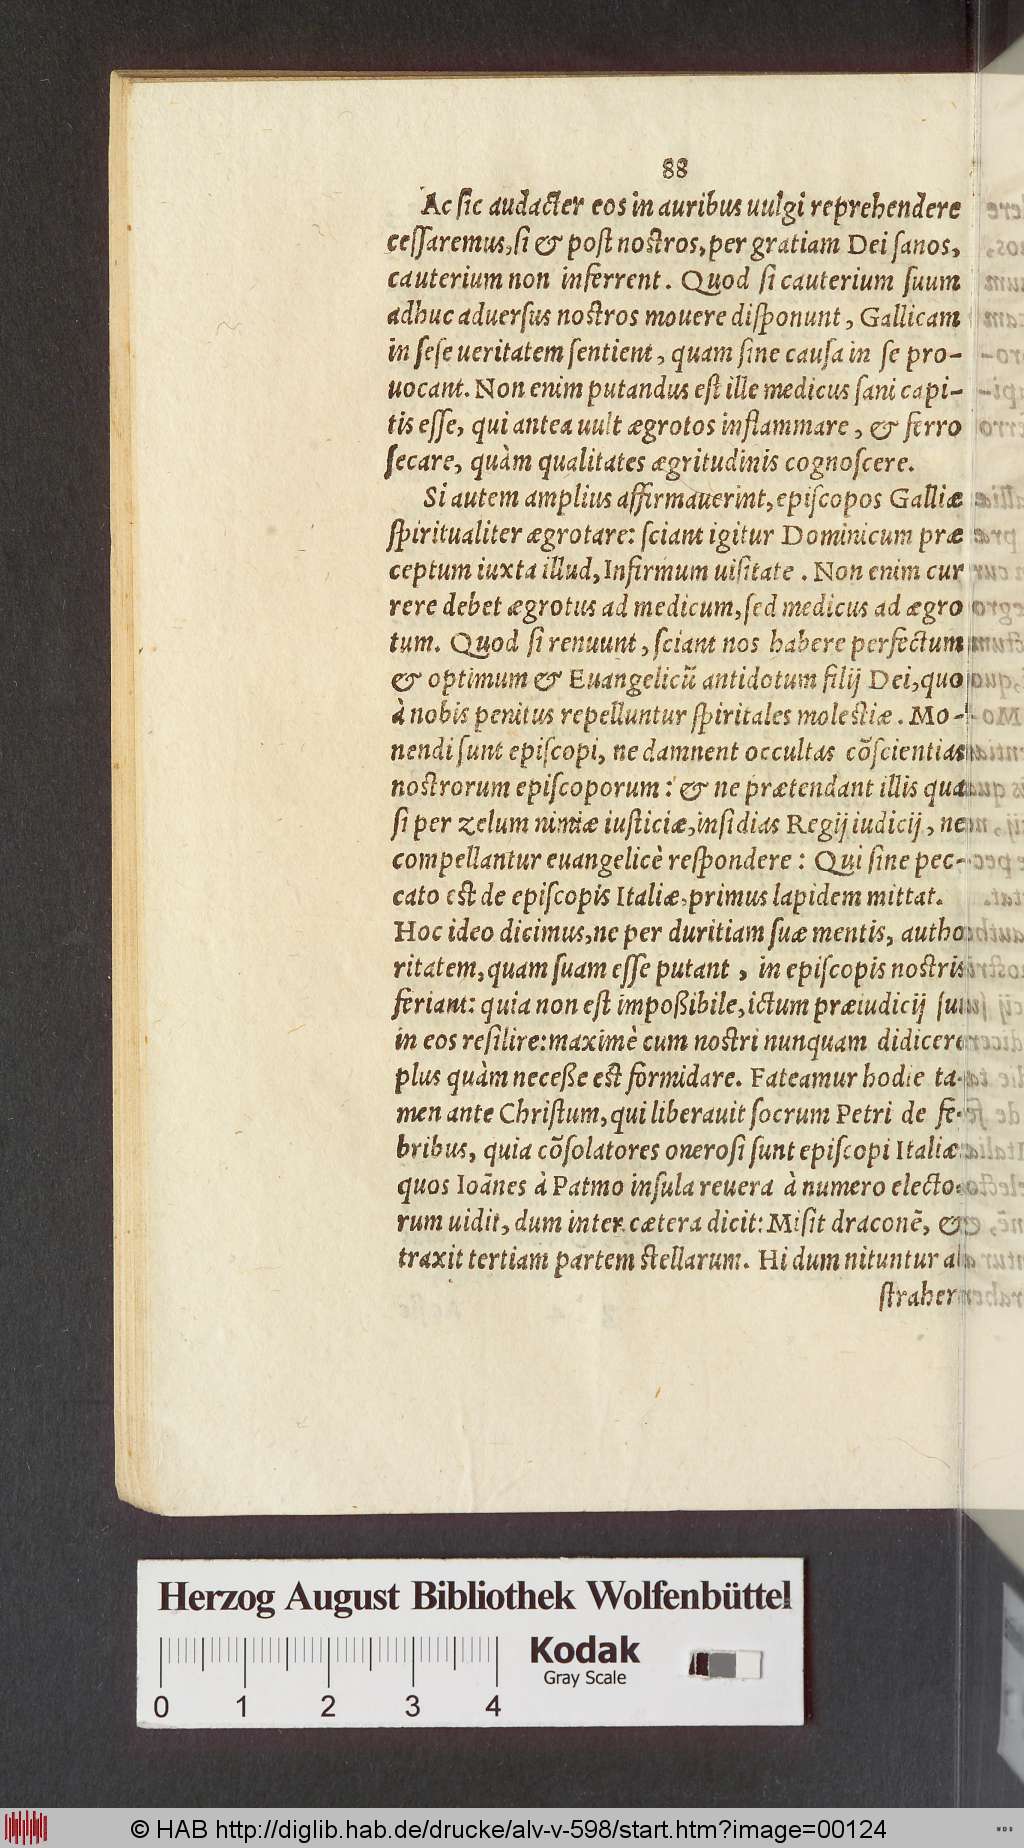 88
Ac ſic audacter eos in auribus uulgi reprehendere
ceſſaremus, ſi & poſt noſtros, per gratiam Dei ſanos,
cauterium non inferrent. Quod ſi cauterium ſuum
adhuc aduerſus noſtros mouere diſponunt, Gallicam
in ſeſe ueritatem ſentient, quam ſine cauſa in ſe pro-
uocant. Non enim putandus eſt ille medicus ſani capi-
tis eſſe, qui antea uult ægrotos inflammare, & ferro
ſecare, quàm qualitates ægritudinis cognoſcere.
Si autem amplius affirmauerint, epiſcopos Galliæ
ſpiritualiter ægrotare: ſciant igitur Dominicum præ
ceptum iuxta illud, Infirmum uiſitate. Non enim cur
rere debet ægrotus ad medicum, ſed medicus ad ægro
tum. Quod ſi renuunt, ſciant nos habere perfectum
& optimum & Euangelicũ antidotum filij Dei, quo
à nobis penitus repelluntur ſpiritales moleſtiæ. Mo-
nendi ſunt epiſcopi, ne damnent occultas cõſcientias
noſtrorum epiſcoporum: & ne prætendant illis qua
ſi per zelum nimiæ iuſticiæ, inſidias Regij iudicij, ne
compellantur euangelicè reſpondere: Qui ſine pec-
cato eſt de epiſcopis Italiæ, primus lapidem mittat.
Hoc ideo dicimus, ne per duritiam ſuæ mentis, autho
ritatem, quam ſuam eſſe putant, in epiſcopis noſtris
feriant: quia non eſt impoßibile, ictum præiudicij ſui
in eos reſilire: maximè cum noſtri nunquam didicere
plus quàm neceße eſt formidare. Fateamur hodie ta-
men ante Chriſtum, qui liberauit ſocrum Petri de fe-
bribus, quia cõſolatores oneroſi ſunt epiſcopi Italiæ
quos Ioānes à Patmo inſula reuera à numero electo-
rum uidit, dum inter cætera dicit: Miſit draconē, &
traxit tertiam partem ſtellarum. Hi dum nituntur a
ſtraher
Herzog August Bibliothek Wolfenbüttel
Kodak
Gray Scale
0 1 2 3 4
© HAB http://diglib.hab.de/drucke/alv-v-598/start.htm?image=00124